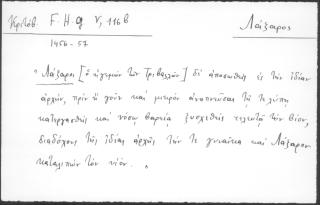 Κριτόβ. F.H.g V, 116b
Λάζαρος
1456-57
"Λάζαρος [ὁ ἡγεμὼν τῶν Τριβαλλῶν] δὲ ἀποσωθεὶς ἐς τὴν ἰδίαν
ἀρχήν, πρὶν ἢ γοῦν καὶ μικρὸν ἀναπνεῦσαι τῇ τε λύπῃ
κατεργασθεὶς καὶ νόσῳ βαρείᾳ ξυσχεθεὶς τελευτᾷ τὸν βίον,
διαδόχους τῆς ἰδίας ἀρχῆς τήν τε γυναῖκα καὶ Λάζαρον
καταλιπὼν τὸν υἱόν. "